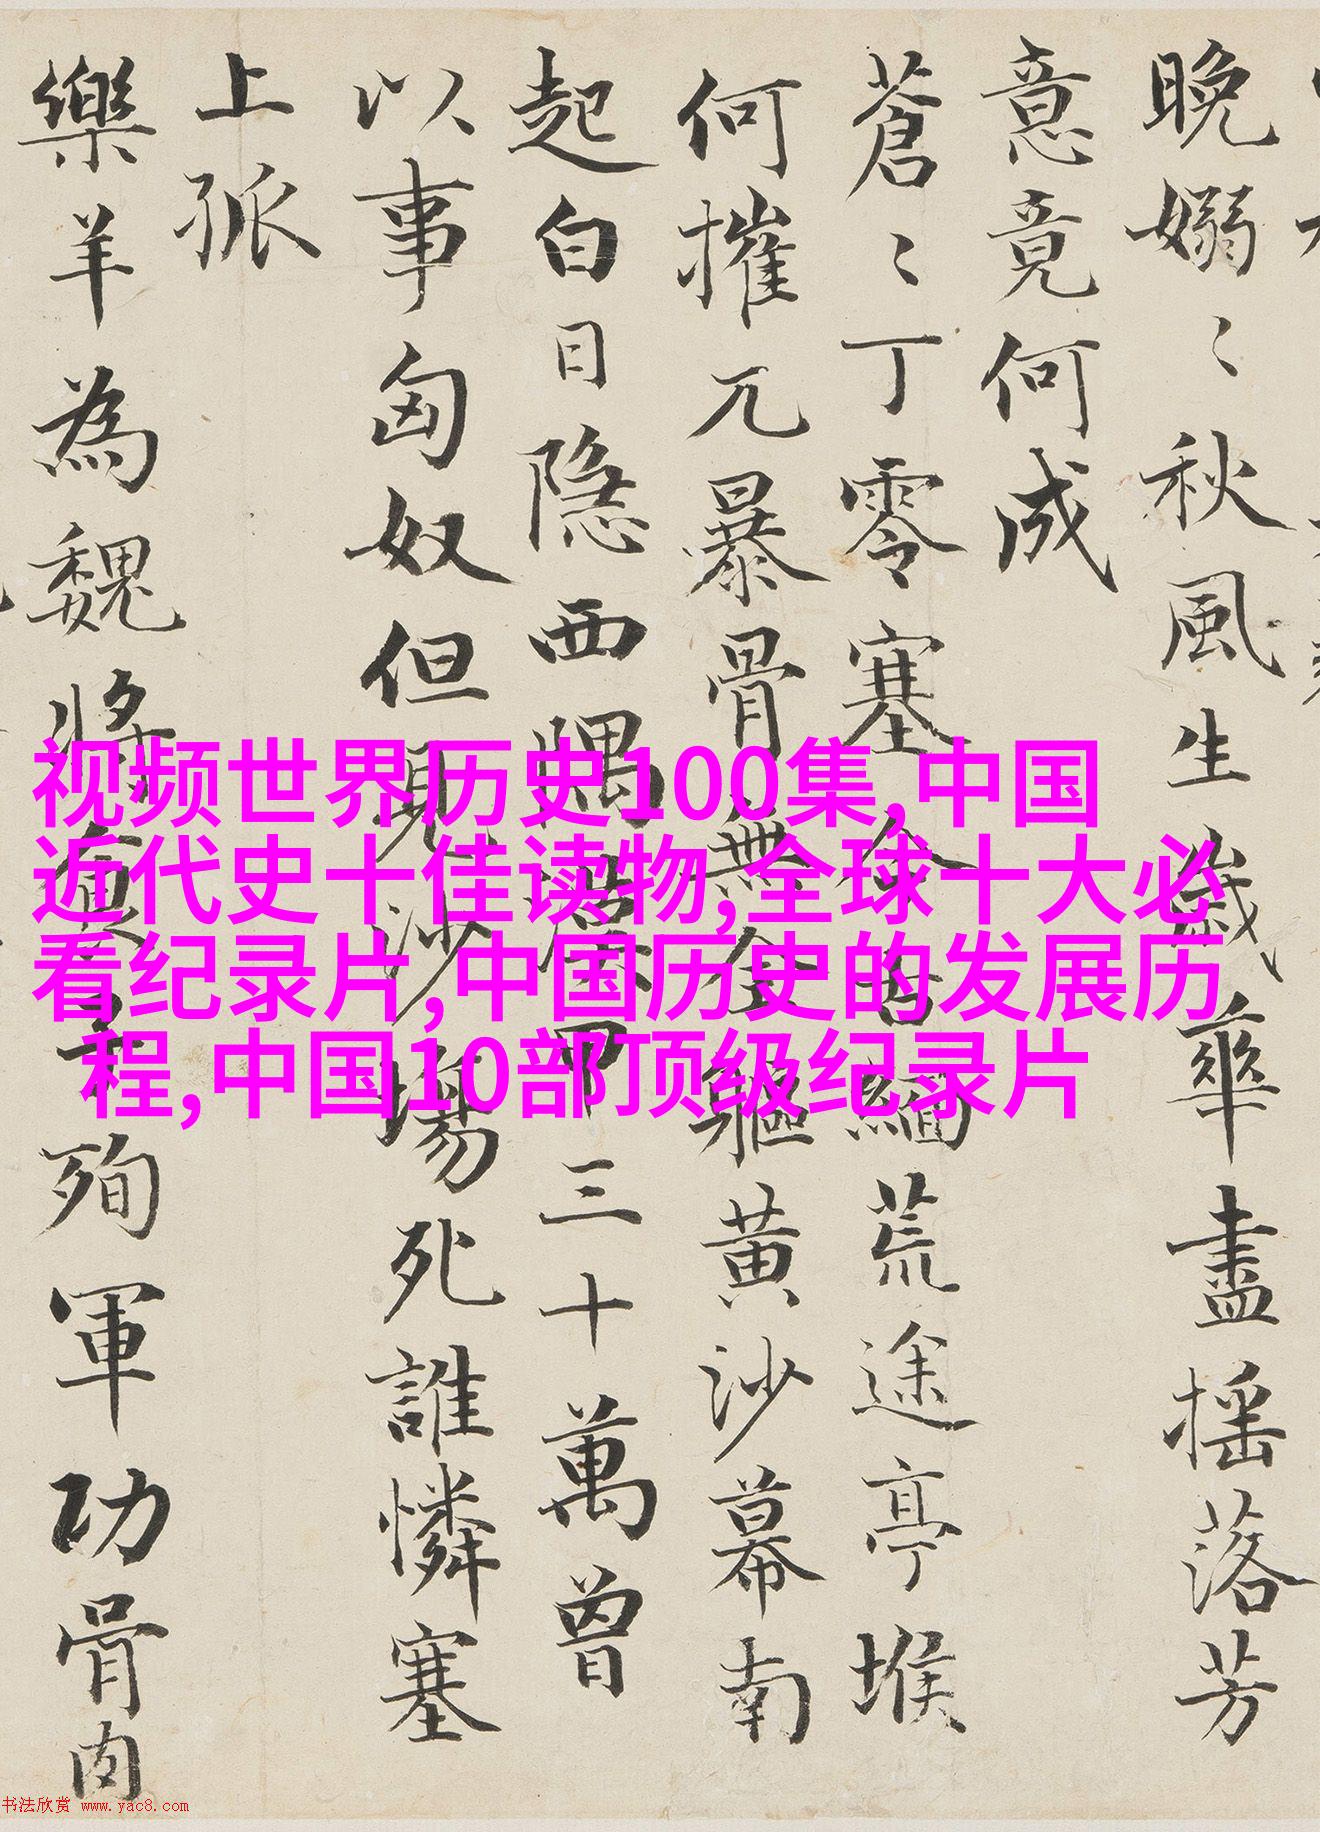 晚嫋〻秋風生歲華盡摇落芳
意竟何成
蒼〻丁零塞今古緬荒途亭堠
何摧兀暴骨無全軀黄沙幕南
起白日隐西隅漢甲三十萬曾
以事匈奴但見沙塲死誰憐塞
上孤
樂羊為魏將食子殉軍功骨肉
视频世界历史100集,中国
近代史十佳读物,全球十大必
看纪录片,中国历史的发展历
程,中国10部顶级纪录片
书法欣赏 www.yac8.com